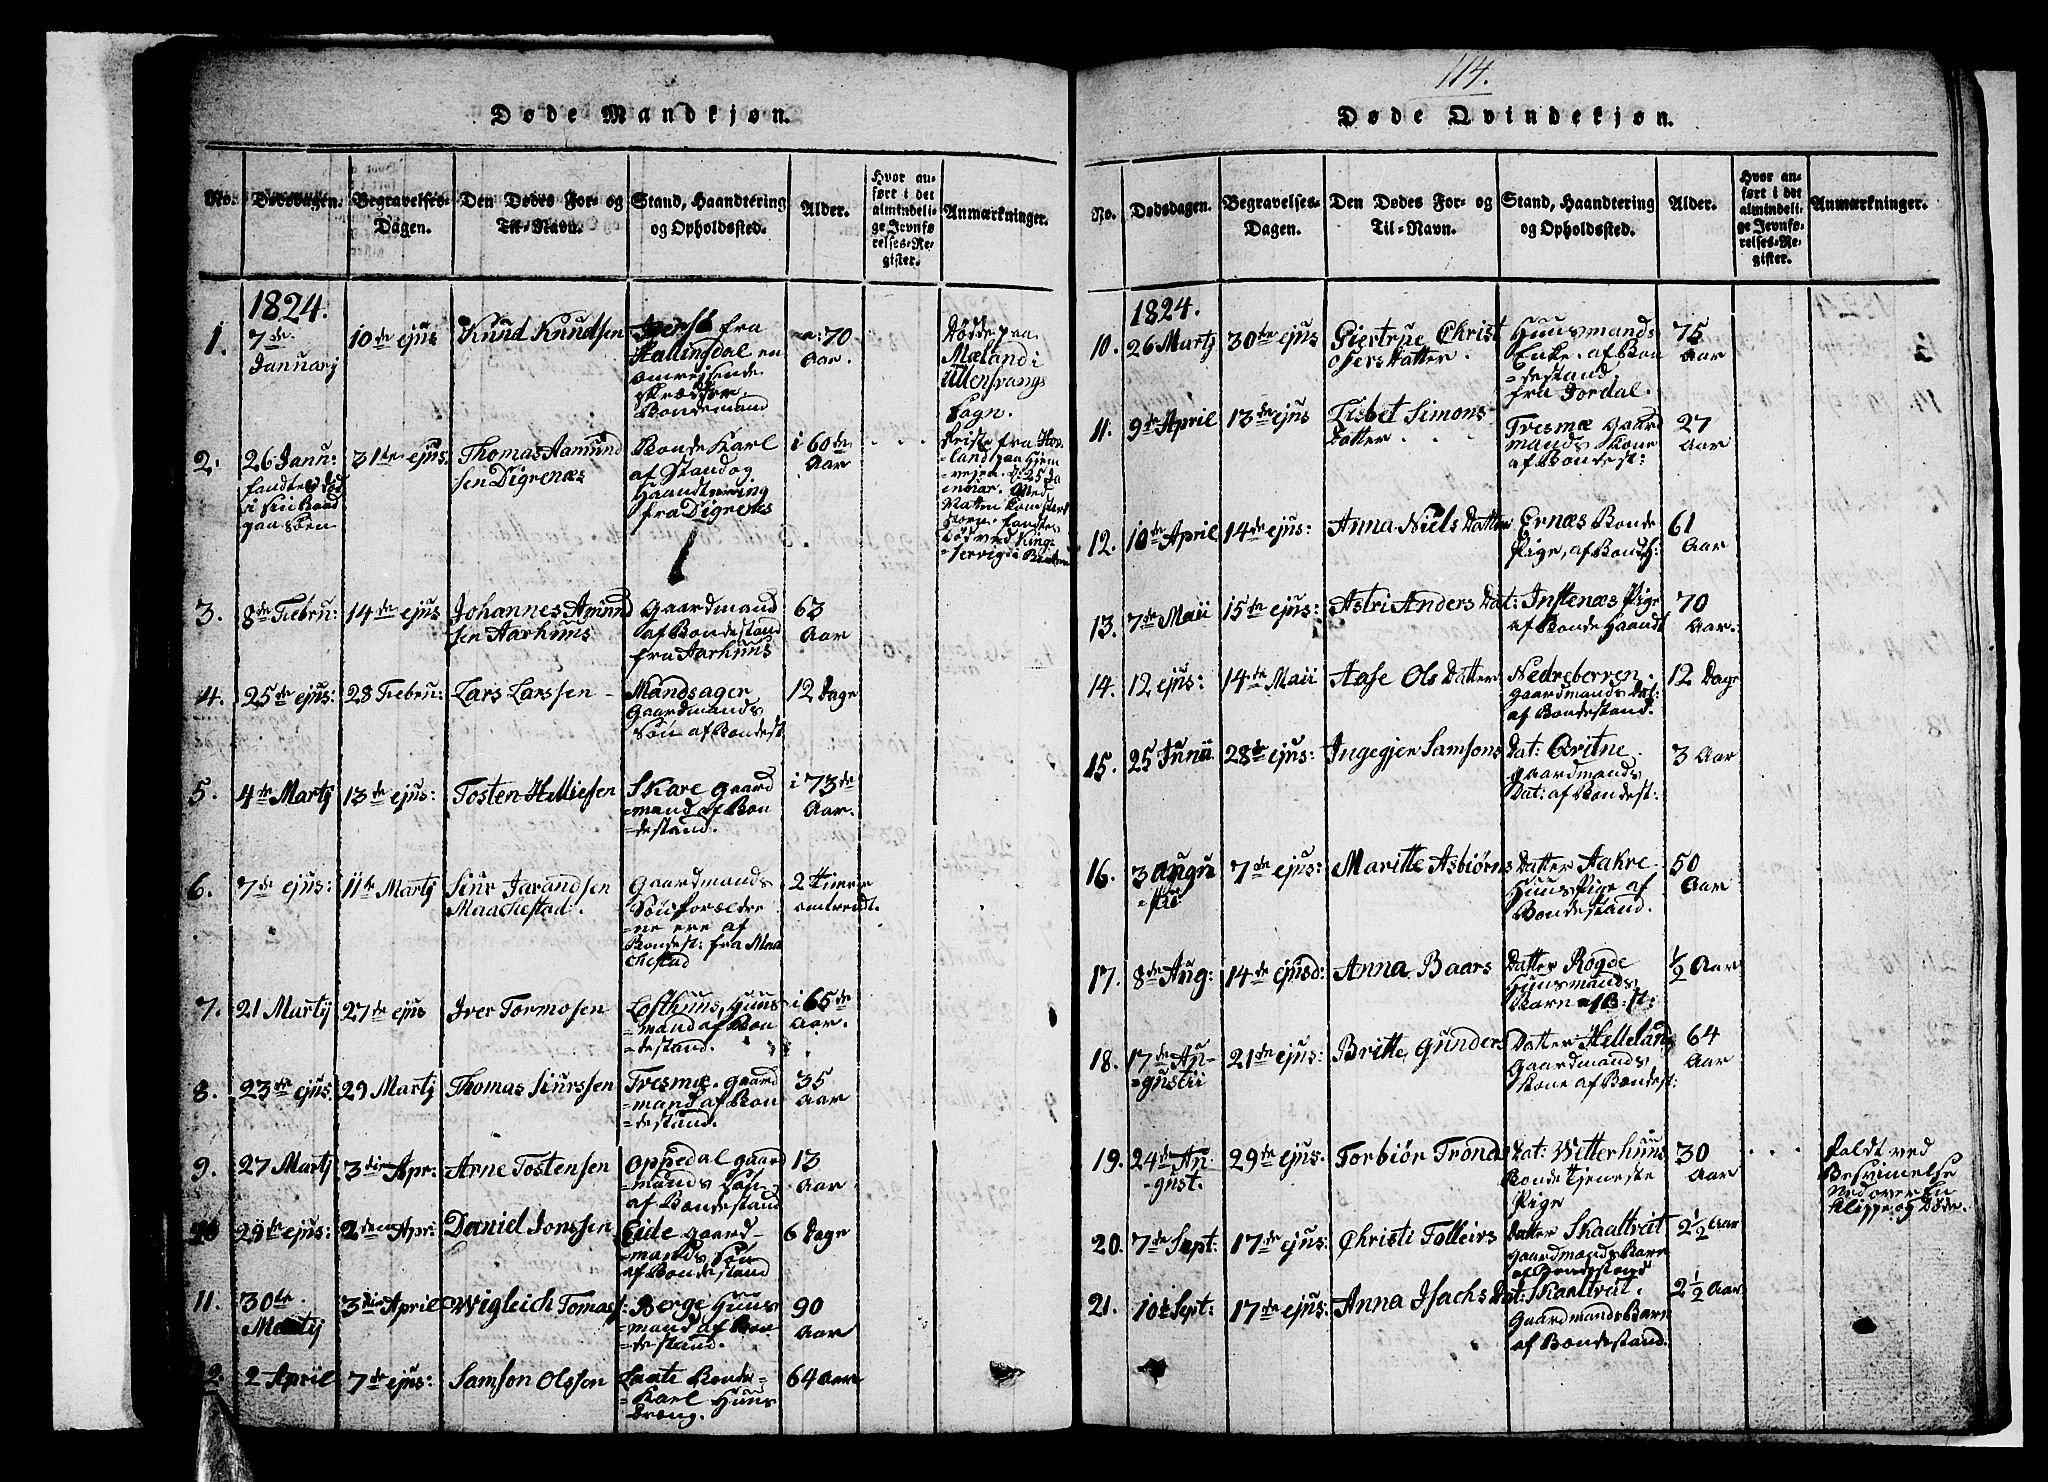 114.
Døde Mandkjøn.
No. Dødsdagen. Begravelses-Dagen. Den Dødes For- og Til-Navn. Stand, Haandtering og Opholdssted. Alder. Hvor anført i det almindelige Jevnførelses-Register. Anmærkninger.
1824.
1. 7de Januarj 10de ejus Knud Knudsen
fra
Hallingdal en
omreisende
Skrædder
Bondemand
70
Aar.
Dødde paa
Mæland i
Ullensvangs
Sogn.
2. 26 Janu: 31te ejus: Thomas Aamund
fandtes død
i sin Baad
paa Søen
sen Digrenæs
Bonde Karl
af Stand og
Haandtering
fra Digrenæs
i 60de
Aar
reiste fra Hov
land paa Hjem
vejen. D: 25 Ja
nuar.
fandtes
Død ved King
servig
3. 8de Febru: 14de ejus Johannes Amund
sen Aarhuus
Gaardmand
af Bondestand
fra Aarhuus
63
Aar
4. 25de ejus: 28 Febru: Lars Larssen
Mandsager
Gaardmands
Søn af Bondest.
12 Dage
5. 4de Martj 13de ejus: Tosten Helliesen
Skare Gaard
mand af Bon
destand.
i 73de
Aar.
6. 7de ejus: 11te Martj Siur Jarandsen
Maachestad.
Gaardmands
Søn forældre
ne ere af
Bondest: fra Maa
chestad
2 Timer
omtrendt.
7. 21 Martij 27de ejus Iver Tormosen
Lofthuus, Huus
mand af Bon
destand.
i 65de
Aar.
8. 23de ejus. 29 Martj Thomas Siurssen
Tresmæ. Gaard
mand af Bon
destand.
35
Aar
9. 27 Martj 3die Apr: Arne Tostensen
Oppedal Gaard
mands Søn
af Bondestand
13
Aar
10 29de ejus: 2den Apr: Daniel Jonssen
Eide Gaard
mands Søn
af Bondestand
6 Dage
11. 30te Martij 3die April Wigleich Tomass:
Berge Huus
mand af Bon
destand.
90
Aar
12. 2 Apriil 7de ejus: Samson Olssen
Laate Bonde
Karl Huus
Dreng.
64 Aar
Døde Qvindekjøn.
No. Dødsdagen. Begravelses-Dagen. Den Dødes For- og Til-Navn. Stand, Haandtering og Opholdssted. Alder. Hvor anført i det almindelige Jevnførelses-Register. Anmærkninger.
1824.
10. 26 Martj 30te ejus Giertrue Christ
ofers Datter.
Huusmands
Enke. af Bon
destand.
fra Jordal.
75
Aar
11. 9de April 13de ejus Lisbet Simons
Datter
Tresmæ Gaard
mands Kone
af Bondest:
27
Aar
12. 10de April 14de ejus: Anna Niels Datter
Ernæs Bonde
Pige, af Bondh:
61
Aar
13. 7de Maii 15de ejus: Astri Anders Dat:
Instenæs Pige
af Bonde Haandt
70
Aar.
14. 12 ejus: 14de Maii Aase Ols Datter
Nedreberven.
Gaardmands Dat:
af Bondestand.
12 Dage
15. 25 Junii 28de ejus: Ingegjer Samsons
Dat: Qvitne.
Gaardmands
Dat: af Bondest:
3 Aar
16. 3 Augu
7de ejus: Maritte Asbiørns
Datter Aakre
Huus Pige af
Bondestand.
50
Aar
17. 8de Aug: 14de ejusd: Anna Baars
Datter Rogde
Huusmands
Barn af B: St:
½ Aar
18. 17de Au-
gustii
21de ejus: Britte Gunders
Datter Helleland
Gaardmands
Kone af Bondest:
64
Aar
19. 24de Au-
gust.
29de ejus. Torbiør Tronds
Dat: Wetterhuus
Bonde Tjeneste
Pige
30
Aar
Faldt ved
Besvimelse
Ned over En
Klippe og Døde.
20. 7de Sept: 17de ejus: Christi Tolleivs
Datter Skaaltvæt
Gaardmands Barn
af Bondestand
2½ Aar
21. 10de Sept: 17de ejus: Anna Isachs
Dat: Skaaltvæt.
Gaardmands Barn
af Bondestand.
2½ Aar